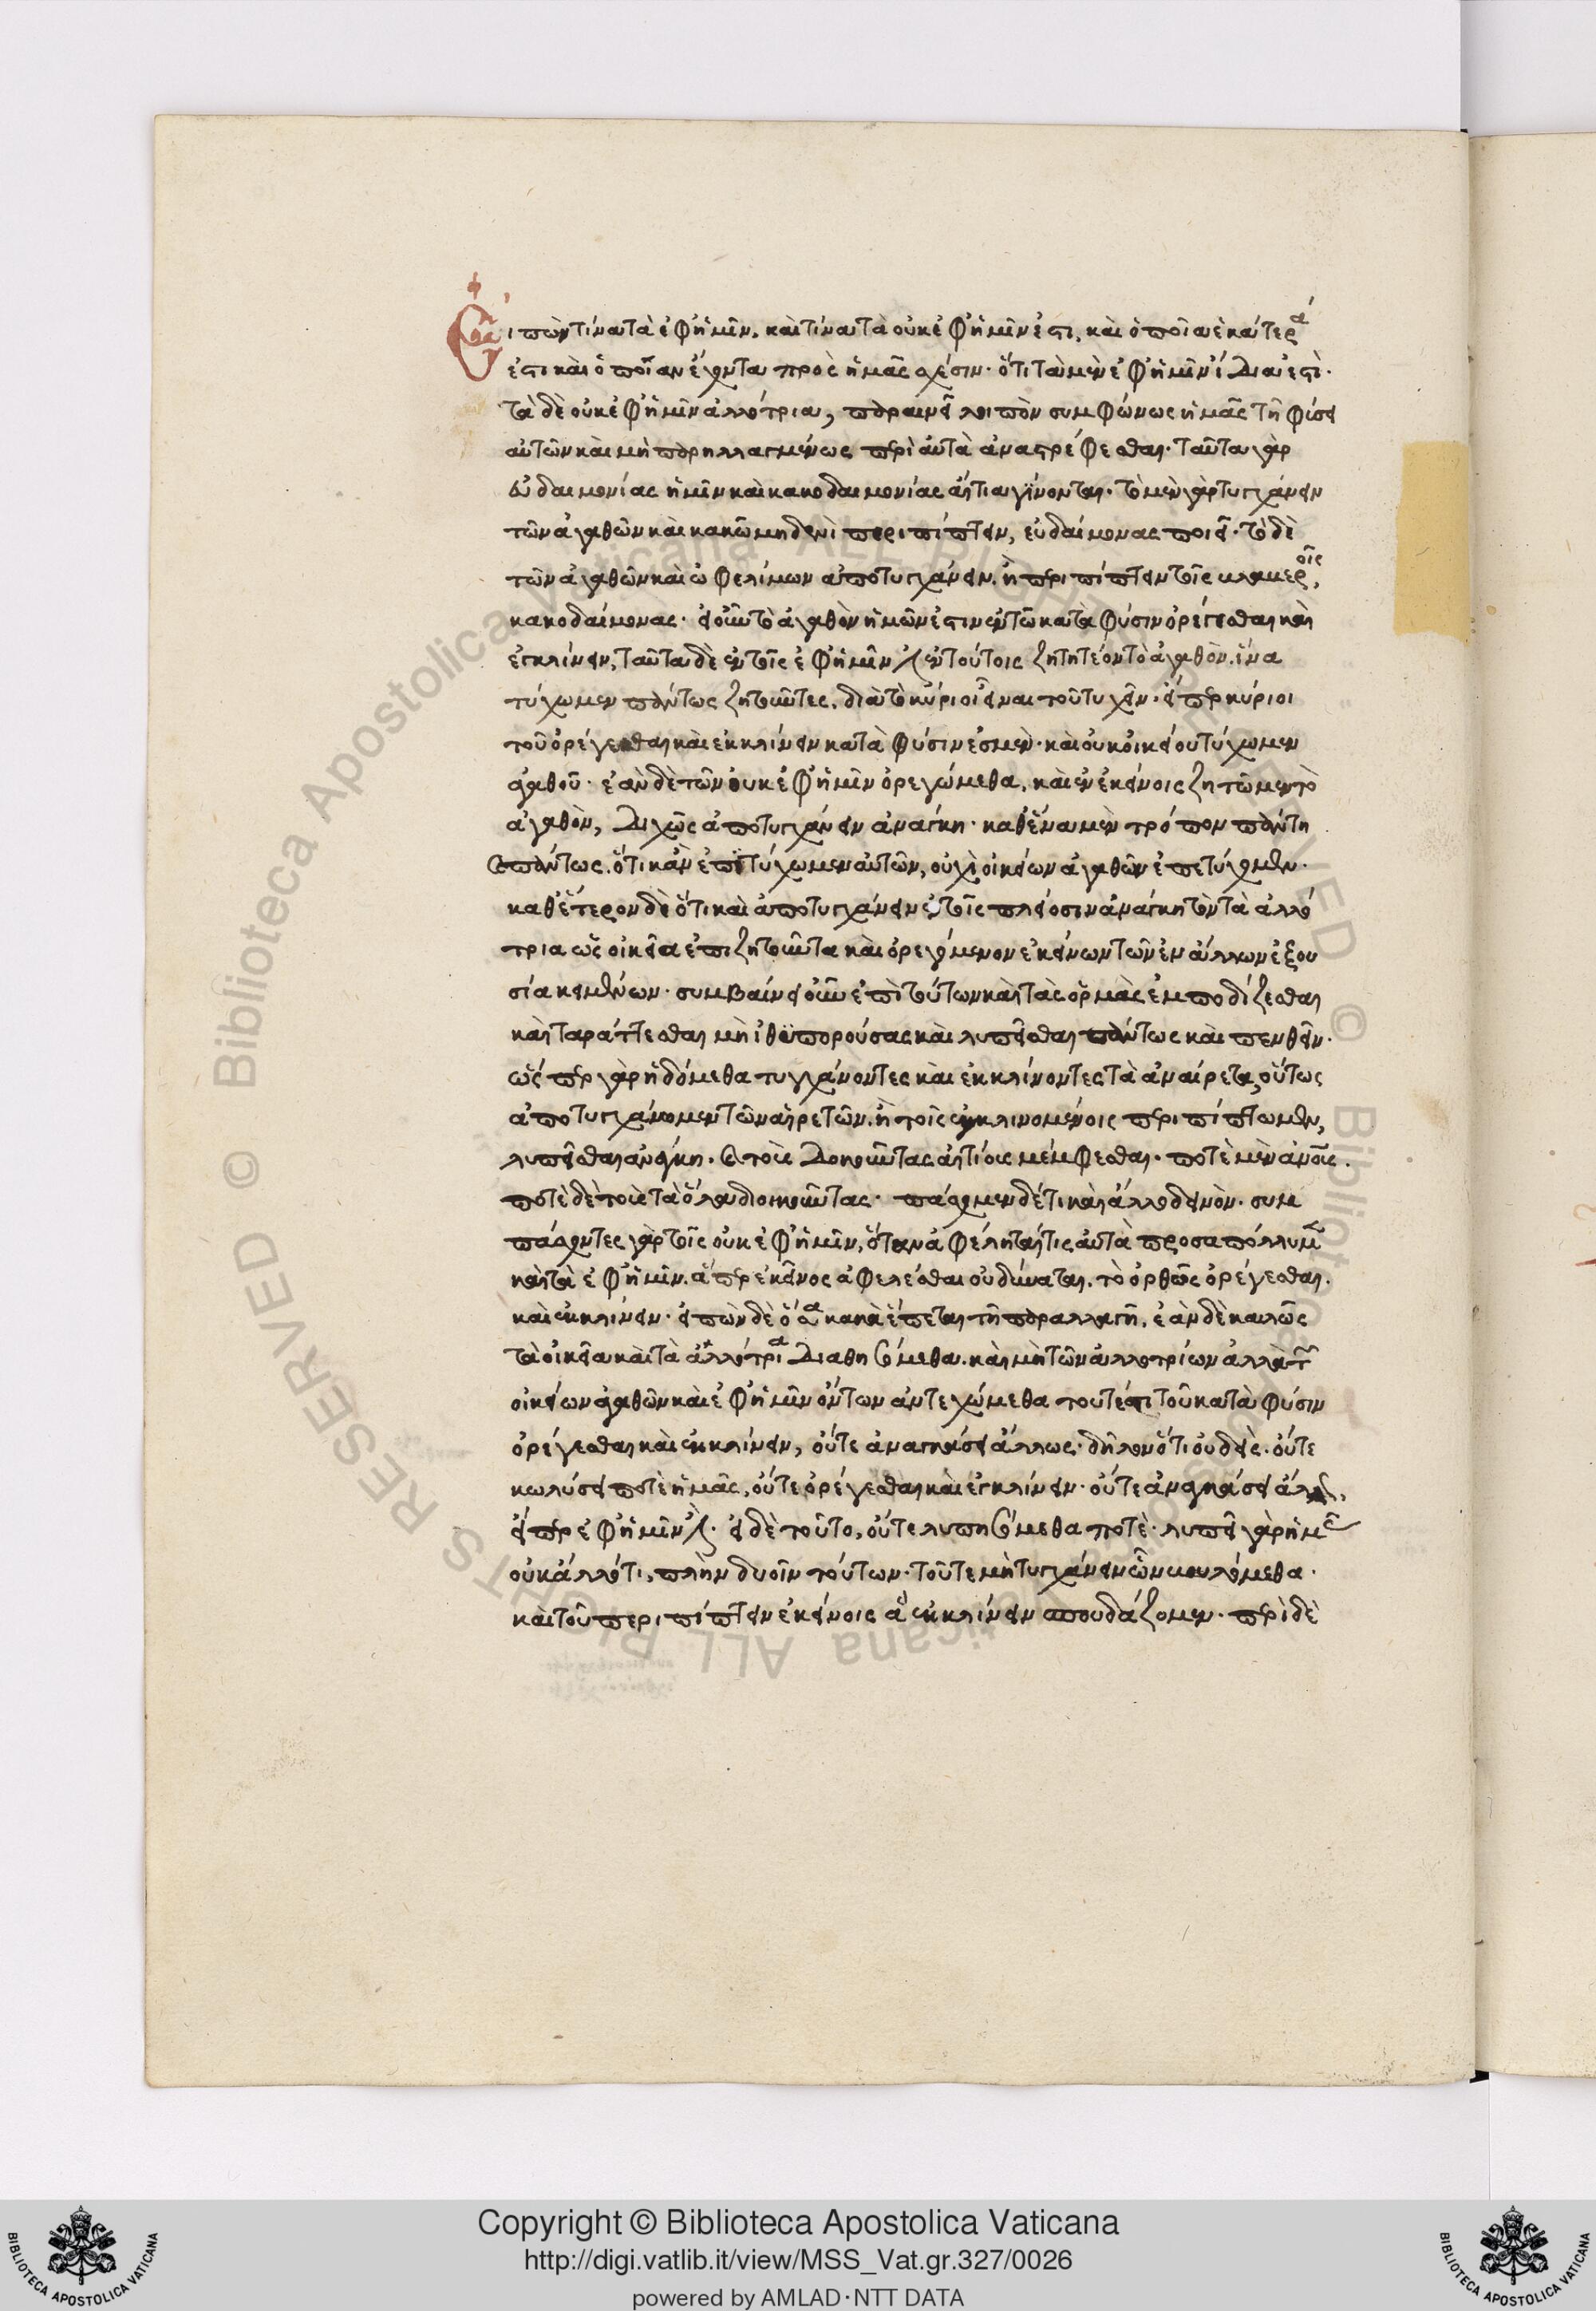 Εἰπὼν τίνα τὰ ἐφ' ἡμῖν, καὶ τίνα τὰ οὐκ ἐφ' ἡμῖν ἐστι, καὶ ὁποῖα ἑκάτερα
ἐστι καὶ ὁποίαν ἔχοντα πρὸς ἡμᾶς σχέσιν· ὅτι τὰ μὲν ἐφ' ἡμῖν ἴδια ἐστὶ·
τὰ δὲ οὐκ ἐφ' ἡμῖν ἀλλότρια, παραινεῖ λοιπὸν συμφώνως ἡμᾶς τῇ φύσει
αὐτῶν καὶ μὴ παρηλλαγμένως περὶ αὐτὰ ἀναστρέφεσθαι. ταῦτα γὰρ
εὐδαιμονίας ἡμῖν καὶ κακοδαιμονίας αἴτια γίνονται. τὸ μὲν γὰρ τυγχάνειν
τῶν ἀγαθῶν καὶ κακῶ μηδενὶ περιπίπτειν, εὐδαίμονας ποιεῖ· τὸ δὲ
τῶν ἀγαθῶν καὶ ὠφελίμων ἀποτυγχάνειν. ἢ περιπίπτειν τοῖς βλαβεροῖς,
κακοδαίμονας· εἰ οὖν τὸ ἀγαθὸν ἡμῶν ἐστιν ἐν τῶ κατὰ φύσιν ὀρέγεσθαι καὶ
ἐκκλίνειν, ταῦτα δὲ ἐν τοῖς ἐφ' ἡμῖν ἐστὶ ἐν τούτοις ζητητέον τὸ ἀγαθὸν. ἵνα
τύχωμεν πάντως ζητοῦντες. διὰ τὸ κύριοι εἶναι τοῦ τυχεῖν· εἴπερ κύριοι
τοῦ ὀρέγεσθαι καὶ ἐκκλίνειν κατὰ φύσιν ἐσμὲν· καὶ οὐκ οἰκείου τύχωμεν
ἀγαθοῦ· ἐὰν δὲ τῶν οὐκ ἐφ' ἡμῖν ὀρεγώμεθα, καὶ ἐν ἐκείνοις ζητῶμεν τὸ
ἀγαθὸν, διχῶς ἀποτυγχάνειν ἀνάγκη· καθ' ἕνα μὲν τρόπον πάντη
καὶ πάντως, ὅτι κἂν ἐπιτύχωμεν αὐτῶν, οὐχὶ οἰκείων ἀγαθῶν ἐπετύχομεν.
καθ' ἕτερον δὲ ὅτι καὶ ἀποτυγχάνειν ἐν τοῖς πλείοσιν ἀνάγκη τὸν τὰ ἀλλό
τρια ὡς οἰκεῖα ἐπιζητοῦντα καὶ ὀρεγόμενον ἐκείνων τῶν ἐν ἄλλων ἐξου
σία κειμένων· συμβαίνει οὖν ἐπὶ τούτων καὶ τὰς ὁρμὰς ἐμποδίζεσθαι
καὶ ταράττεσθαι μὴ εὐθυπορούσας καὶ λυπεῖσθαι πάντως καὶ πενθεῖν·
ὥσπερ γὰρ ἡδόμεθα τυγχάνοντες καὶ ἐκκλίνοντες τὰ ἀναίρετα, οὕτως
ἀποτυγχάνομεν τῶν αἱρετῶν, ἢ τοῖς ἐκκλινομένοις περιπίπτωμεν,
λυπεῖσθαι ἀνάγκη. καὶ τοὺς δοκοῦντας αἰτίους μέμφεσθαι. ποτὲ μὲν ἀνους.
ποτὲ δὲ τοὺς τὰ ὅλα διοικοῦντας· πάσχομεν δέ τι καὶ ἄλλο δεινὸν· συμ
πάσχοντες γὰρ τοῖς οὐκ ἐφ' ἡμῖν, ὅταν ἀφέληταί τις αὐτὰ προσαπόλλυμεν
καὶ τὰ ἐφ' ἡμῖν. ἅπερ ἐκεῖνος ἀφελέσθαι οὐ δύναται. τὸ ὀρθῶς ὀρέγεσθαι.
καὶ ἐκκλίνειν· εἰπὼν δὲ ὅσα κακὰ ἕπεται τῇ παραλλαγῇ, ἐὰν δὲ καλῶς
τὰ οἰκεῖα καὶ τὰ ἀλλότρια διαθησόμεθα. καὶ μὴ τῶν ἀλλοτρίων ἀλλὰ τῶν
οἰκείων ἀγαθῶν καὶ ἐφ' ἡμῖν ὄντων ἀντεχώμεθα τουτέστι τοῦ κατὰ φύσιν
ὀρέγεσθαι καὶ ἐκκλίνειν, οὔτε ἀναγκάσει ἄλλως· δῆλον ὅτι οὐδεὶς. οὔτε
κωλύσει ποτὲ ἡμᾶς, οὔτε ὀρέγεσθαι καὶ ἐκκλίνειν· οὔτε ἀναγκάσει
εἴπερ ἐφ' ἡμῖν ἐστὶ. εἰ δὲ τοῦτο, οὔτε λυπησόμεθα ποτὲ· λυπεῖ γὰρ ἡμᾶς
οὐκ ἄλλό τι, πλὴν δυοῖν τούτων· τοῦ τε μὴ τυγχάνειν ὧν βουλόμεθα.
καὶ τοῦ περιπίπτειν ἐκείνοις ἃ ἐκκλίνειν σπουδάζομεν· περὶ δὲ
© Biblioteca Apostolica Vaticana ALL RIGHTS RESERVED
Copyright © Biblioteca Apostolica Vaticana
http://digi.vatlib.it/view/MSS_Vat.gr.327/0026
powered by AMLAD·NTT DATA
BIBLIOTECA APOSTOLICA VATICANA
BIBLIOTECA APOSTOLICA VATICANA